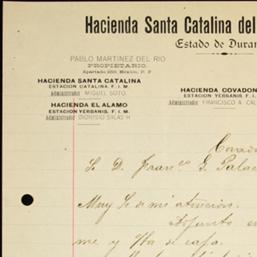 Hacienda Santa Catalina del
Estado de Duran
PABLO MARTINEZ DEL RIO
PROPIETARIO.
Apartado México, D. F
HACIENDA SANTA CATALINA
ESTACION CATALINA, F. I. M.
Administrador MIGUEL SOTO.
HACIENDA EL ALAMO
ESTACION YERBANIS, F. I. M.
Administrador DIONISIO SALAS H
HACIENDA COVADON
ESTACION YERBANIS, F. I.
Administrador FRANCISCO A. CAL
Covad
S. D. Franco G. Palac
Muy S. de mi atencion.
Adjunto en
me y